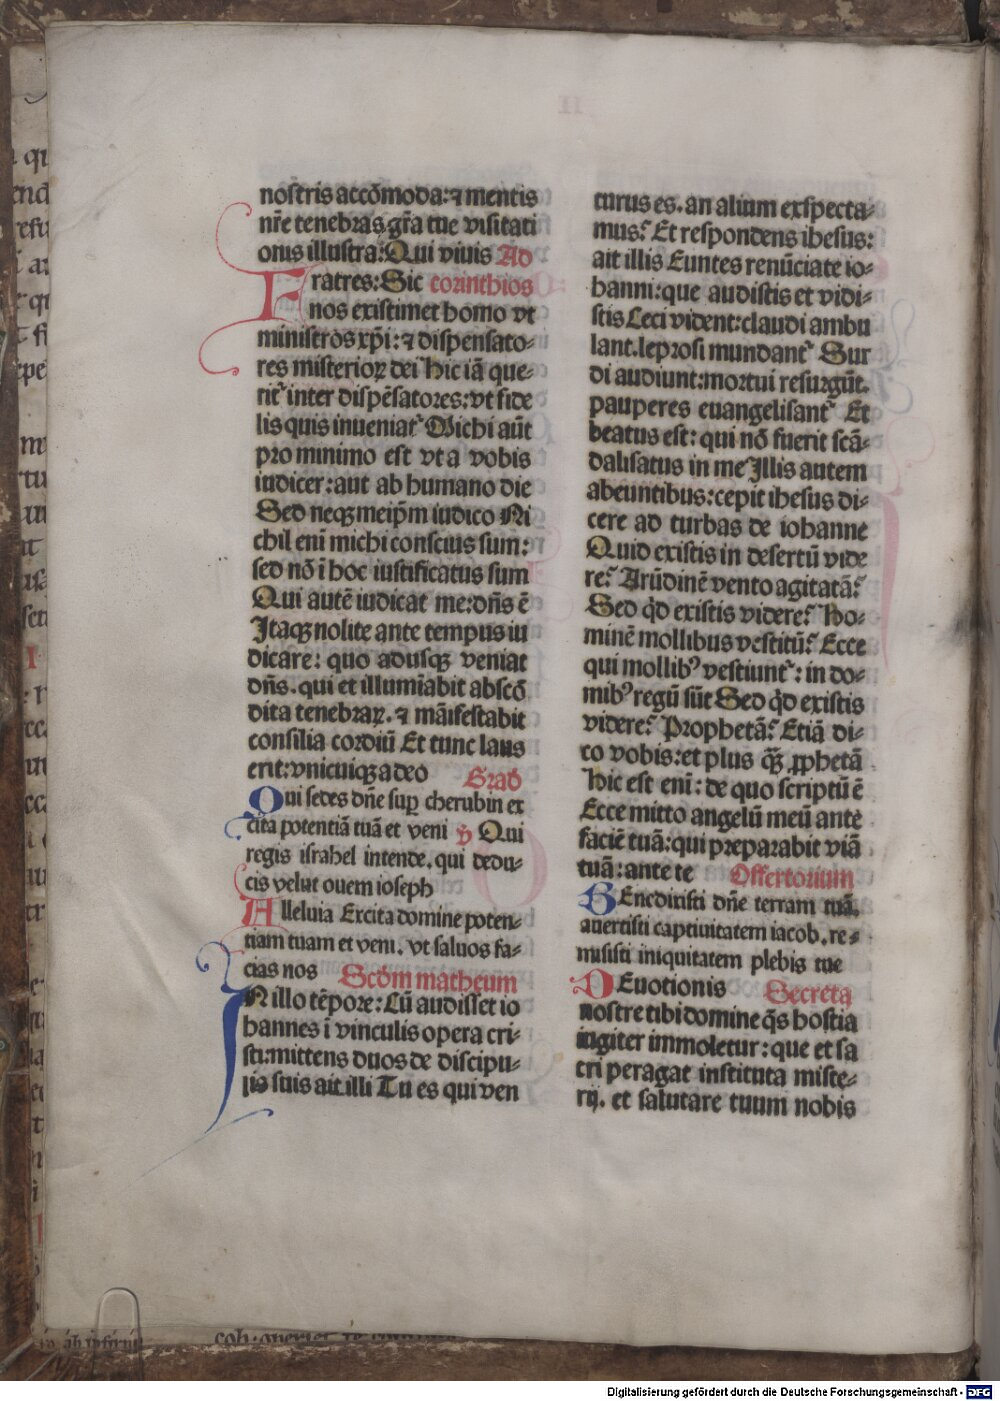 nostris accōmoda: ⁊ mentis
nr̄e tenebras gr̄a tue visitati
onis illustra: Qui viuis Ad
Fratres: Sic corinthios
nos existimet homo vt
ministros xp̄i: ⁊ dispensato-
res misterioꝝ dei hic iā que-
rit᷑ inter dispēsatores: vt fide
lis quis inueniat᷑ Michi aūt
pro minimo est vt a vobis
iudicer: aut ab humano die
Sed neqꝫ meip̄m iudico Ni
chil eni̅ michi conscius sum:
sed nō ī hoc iustificatus sum
Qui autē iudicat me: dn̄s ē
Itaqꝫ nolite ante tempus iu
dicare: quo adusqꝫ veniat
dn̄s. qui et illumīabit abscō
dita tenebraꝝ. ⁊ māifestabit
consilia cordiū Et tunc laus
erit: vnicuiqꝫ a deo Grad̄
Qui sedes dn̄e suꝑ cherubin ex
cita potentiā tuā et veni ℣ Qui
regis israhel intende. qui dedu-
cis velut ouem ioseph
Alleluia Excita domine poten-
tiam tuam et veni. vt saluos fa-
cias nos Scd̄m matheum
IN illo tēpore: Cū audisset io
hannes ī vinculis opera cri-
sti: mittens duos de discipu-
lis suis ait illi Tu es qui ven
turus es. an alium exspecta-
mus? Et respondens ihesus:
ait illis Euntes renūciate io-
hanni: que audistis et vidi-
stis Ceci vident: claudi ambu
lant. leprosi mundant᷑ Sur
di audiunt: mortui resurgūt.
pauperes euangelisant᷑ Et
beatus est: qui nō fuerit scā-
dalisatus in me Illis autem
abeuntibus: cepit ihesus di-
cere ad turbas de iohanne
Quid existis in desertū vide
re? Arūdinē vento agitatā?
Sed qd̄ existis videre? Ho-
minē mollibus vestitū? Ecce
qui mollibꝰ vestiunt᷑: in do-
mibꝰ regū sūt Sed qd̄ existis
videre? Prophetā? Etiā di-
co vobis: et plus qꝫ̄ ꝓphetā
hic est eni̅: de quo scriptū ē
Ecce mitto angelū meū ante
faciē tuā: qui preparabit viā
tuā: ante te Offertorium
BEnedixisti dn̄e terram tuā.
auertisti captiuitatem iacob. re-
misisti iniquitatem plebis tue
DEuotionis Secreta
nostre tibi domine qs̄ hostia
iugiter immoletur: que et sa
cri peragat instituta miste-
rij. et salutare tuum nobis
Digitalisierung gefördert durch die Deutsche Forschungsgemeinschaft - DFG